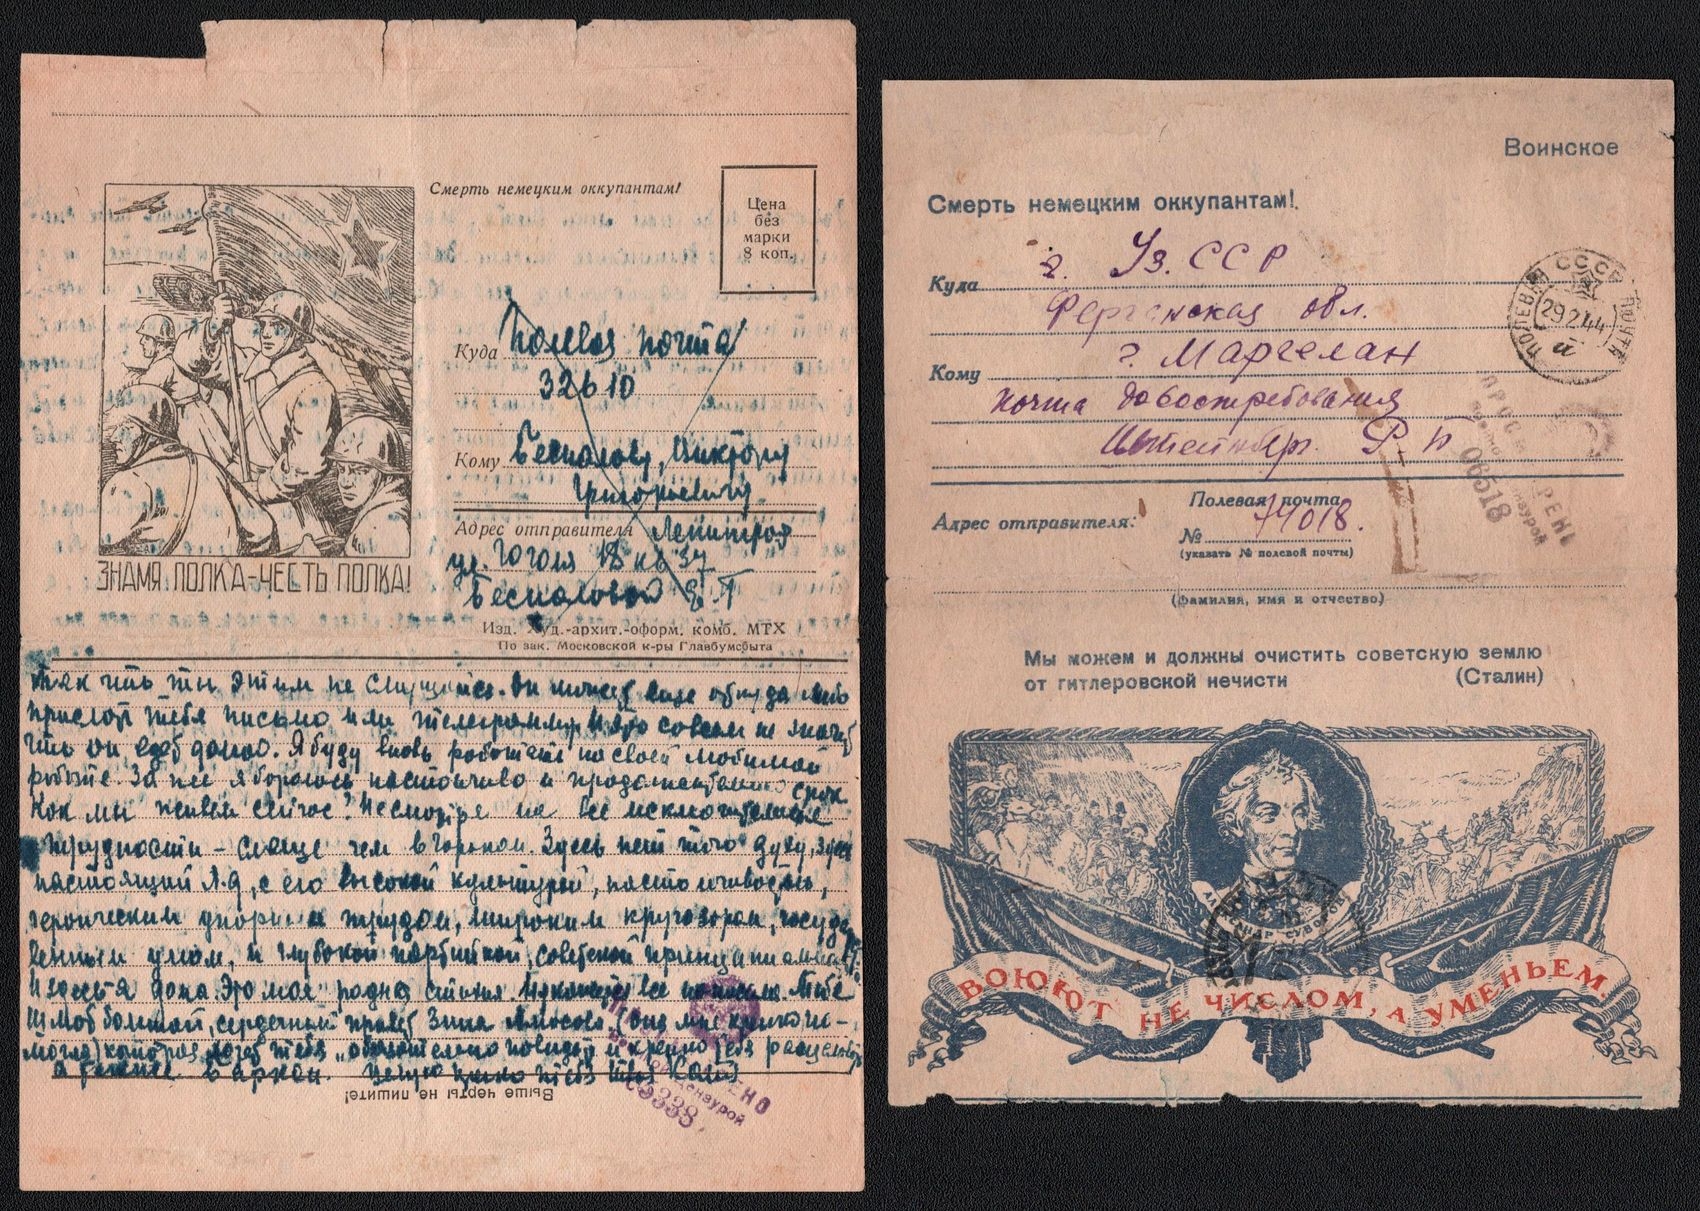 Смерть немецким оккупантам!
Цена
без
марки
8 коп.
Куда Полевая почта
32610
Кому Беспалову, Виктору
Григорьевичу
Адрес отправителя Ленинград
ул. Гоголя 18 кв 37
Беспаловой Е. Г
ЗНАМЯ ПОЛКА–ЧЕСТЬ ПОЛКА!
Изд. Худ.-архит.-оформ. комб. МТХ
По зак. Московской к-ры Главбумсбыта
так что ты этим не смущайся. Он может еще
прислать тебя письмо или телеграмму и это совсем не значит
что он едет домой. Я буду вновь работать на своей любимой
работе. За нее я боролась настойчиво и продолжительно срок
Как мы живем сейчас? Несмотря на все исключительные
трудности – слаще чем в Горьком. Здесь нет того духу, здесь
настоящий Л-д, с его высокой культурой, настойчивостью,
героическим упорным трудом, широким кругозором,
умом, и глубокой партийной, советской
И здесь я дома. Это моя родная стихия. Ну кажется все написала. Тебе
большой, сердечный привет Зина
могла) которая хочет тебя „обязательно повидать и крепко тебя расцеловать
Целую крепко тебя твоя Катя
Выше черты не пишите!
ПРОСМОТРЕНО
Военной Цензурой
09338
Воинское
Смерть немецким оккупантам!
Куда г. Уз. ССР
Ферганская обл.
Кому г. Маргелан
почта до востребования
Штейнберг. Р. П
ПОЛЕВАЯ ПОЧТА СССР
29 2 44
ПРОСМОТРЕНО
Военной Цензурой
06518
Адрес отправителя: Полевая почта
№ 71018.
(указать № полевой почты)
(фамилия, имя и отчество)
Мы можем и должны очистить советскую землю
от гитлеровской нечисти (Сталин)
АЛЕКСАНДР СУВОРОВ
ВОЮЮТ НЕ ЧИСЛОМ, А УМЕНЬЕМ.